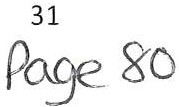 31
Page 80